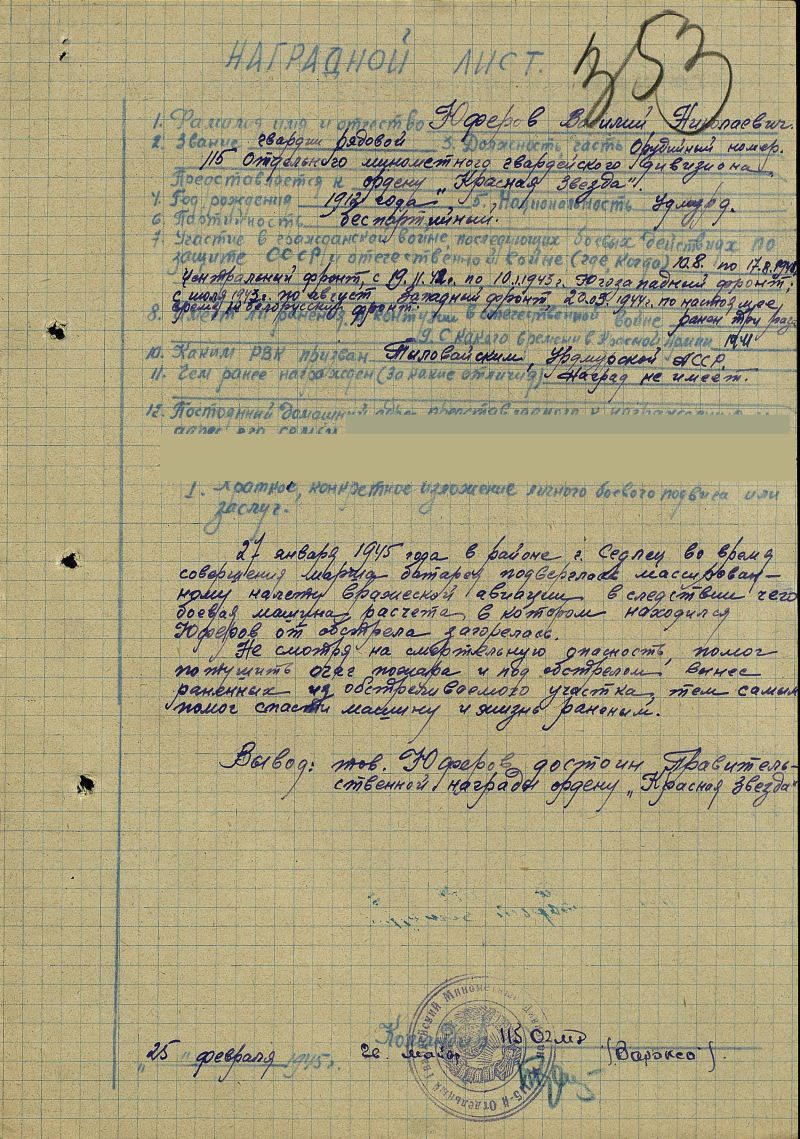 353
НАГРАДНОЙ ЛИСТ.
1. Фамилия имя и отчество Юферов Василий Николаевич.
2. Звание гвардии рядовой 3. Должность часть Орудийный номер.
115 Отдельного минометного гвардейского дивизиона
Представляется к ордену „Красная Звезда".
4. Год рождения 1912 года 5. Национальность Удмурд.
6. Партийность беспартийный.
7. Участие в гражданской войне, последующих боевых действиях по
защите СССР и отечественной войне (где, когда) 10.8. по 17.8.
Центральный фронт, с 19.11.42г. по 10.1.1943г. Югозападный фронт;
с июля 1943г. по август Западный фронт 20.03.1944г. по настоящее
время 1 белорусский фронт.
8. Имеет ли ранения и контузии в отечественной войне ранен три раза
9. С какого времени в Красной Армии 1941
10. Каким РВК призван Тыловайским, Удмурской АССР.
11. Чем ранее награжден (за какие отличия) Наград не имеет.
12. Постоянный домашний адрес представляемого к награждению и
адрес его семьи
I. Краткое, конкретное изложение личного боевого подвига или
заслуг.
27 января 1945 года в районе г. Седлец во время
совершения марша батарея подверглась массирован-
ному налету вражеской авиации в следствии чего
боевая машина расчета в котором находился
Юферов от обстрела загорелась.
Не смотря на смертельную опасность, помог
потушить очаг пожара и под обстрелом вынес
раненных из обстреливаемого участка, тем самым
помог спасти машину и жизнь раненым.
Вывод: тов. Юферов достоин Правитель-
ственной награды ордену „Красная Звезда"
Командир 115 ОГМД
„25" февраля 1945г. Гв. майор (Вараксо).